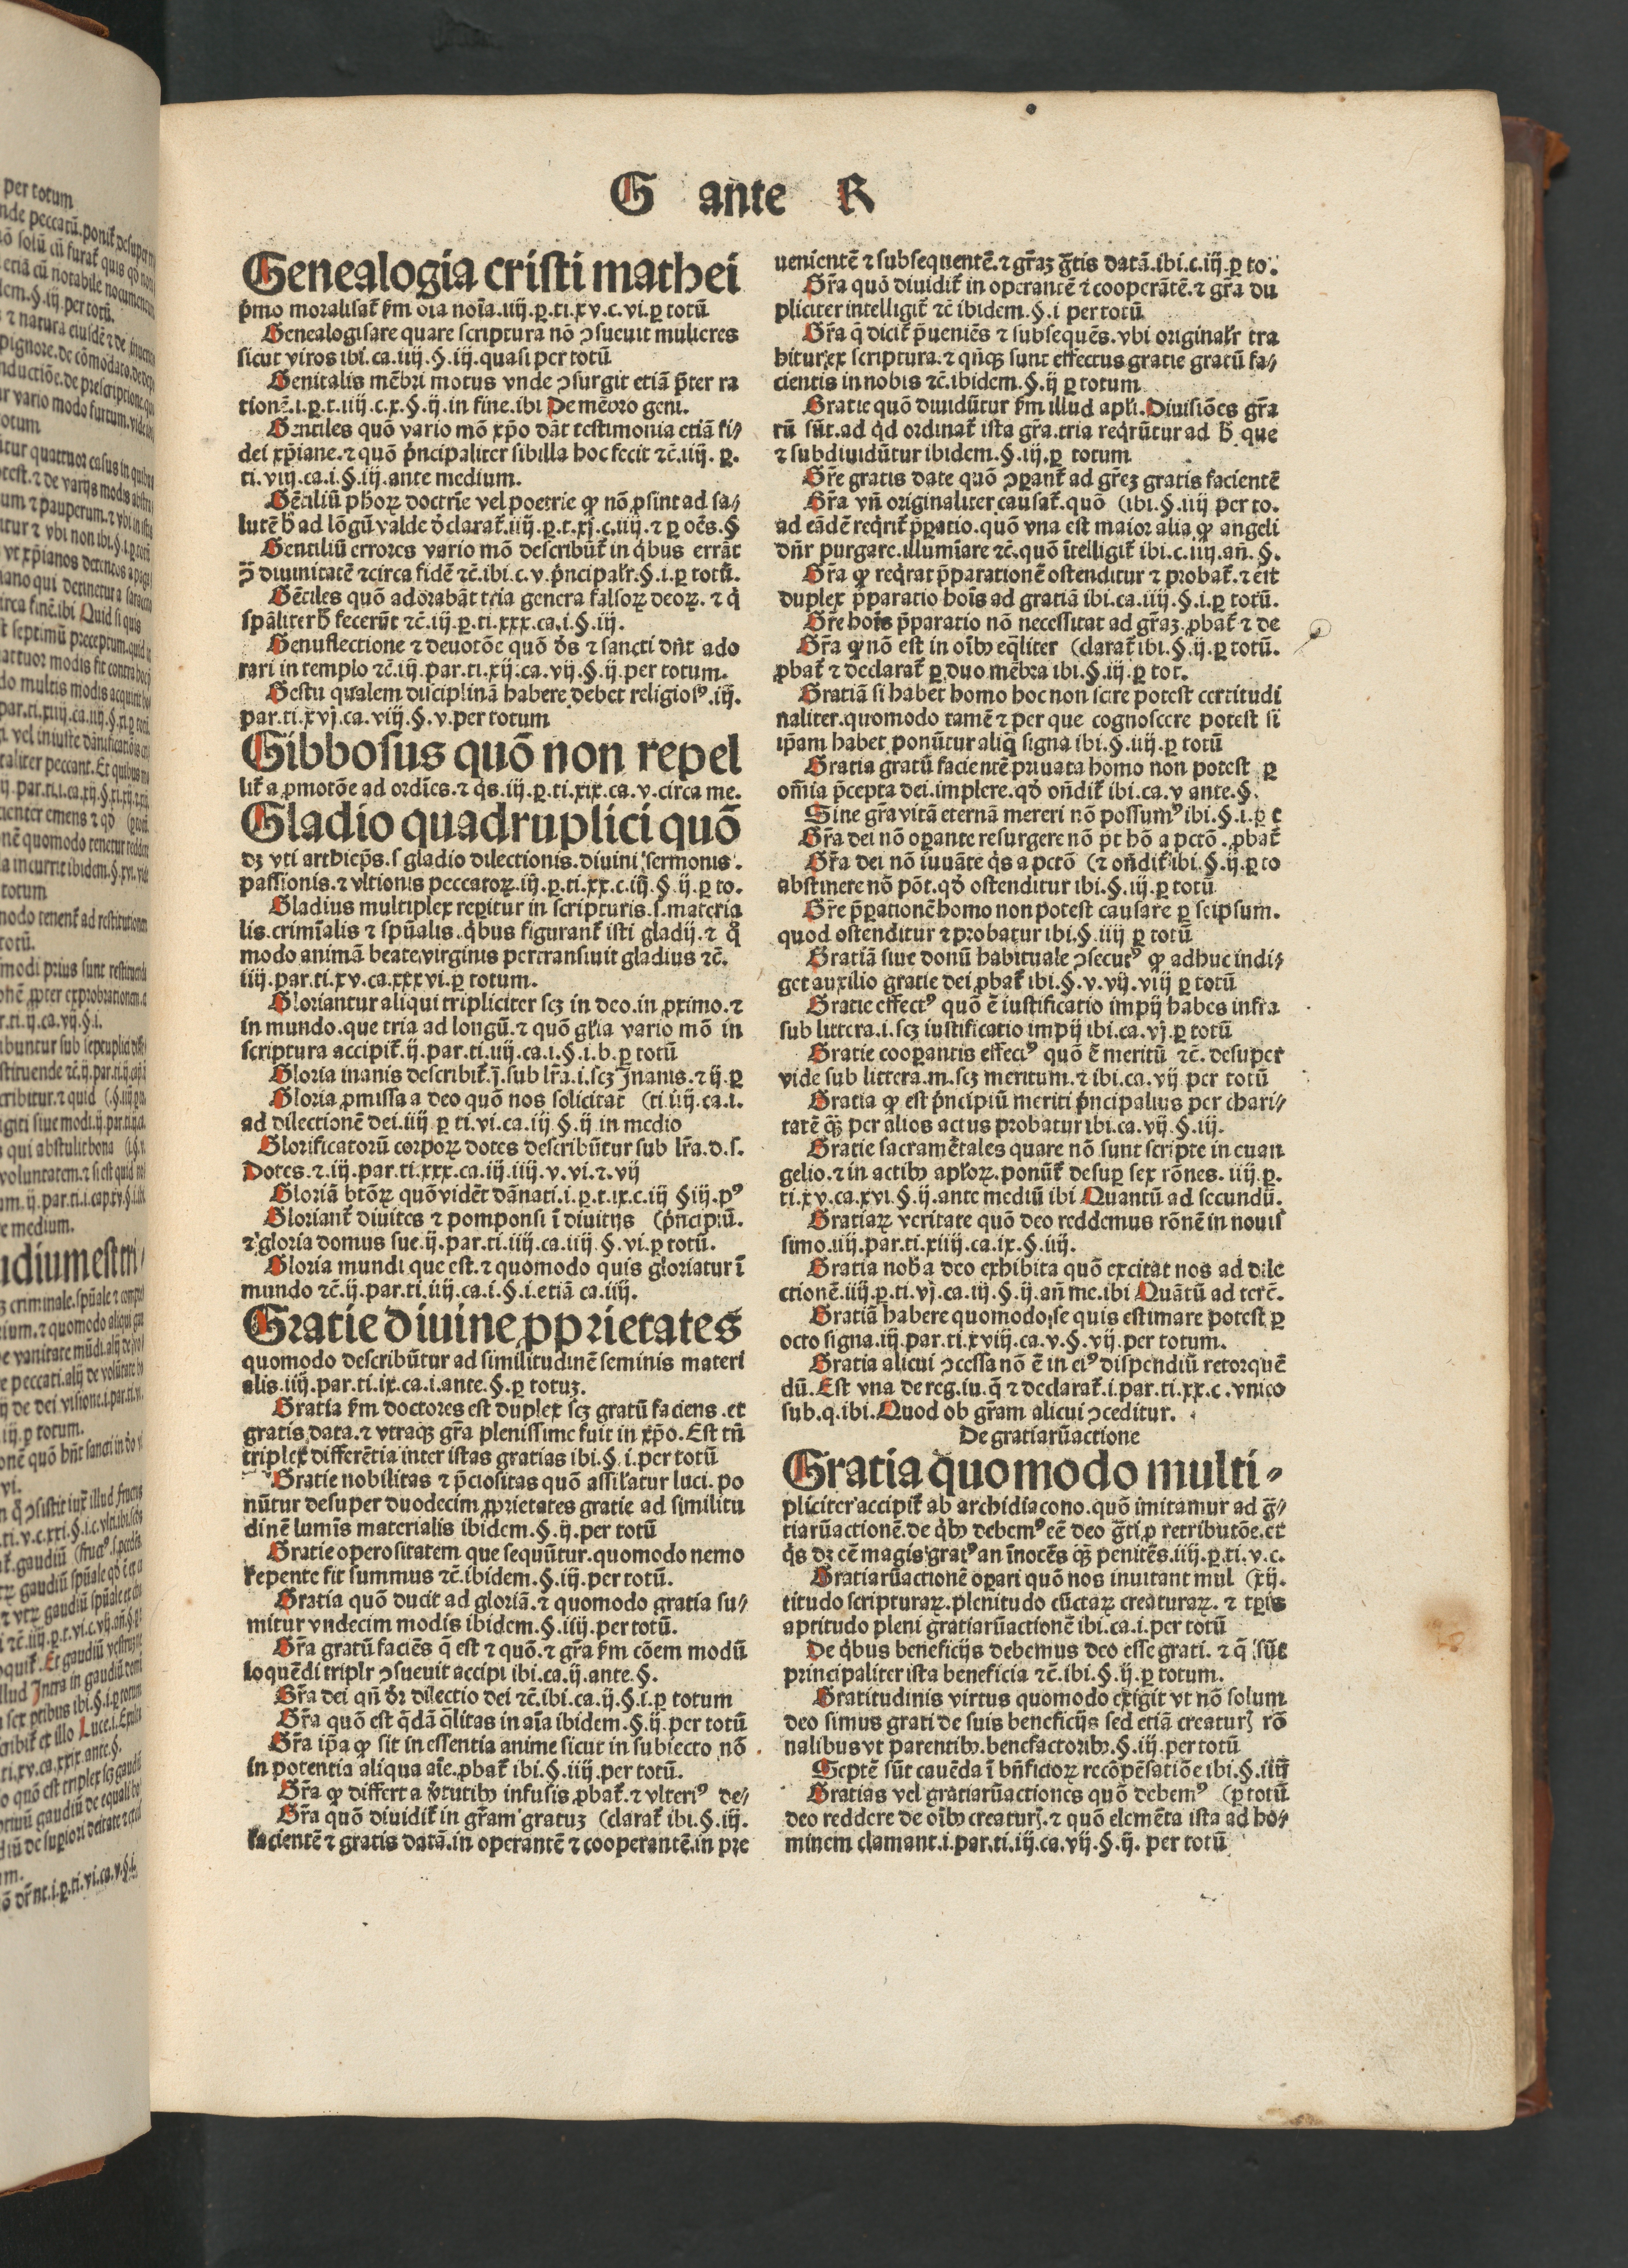 G ante R
Genealogia cristi mathei
p̄mo moralisat̄ ẜm oīa noīa.iiij.ꝑ.ti.xv.c.vi.ꝑ totū
Genealogisare quare scriptura nō ꝯsueuit mulieres
sicut viros ibi.ca.iiij.§.iij.quasi per totū
Genitalis mēbri motus vnde ꝯsurgit etiā p̄ter ra
tionē.i.ꝑ.t.iiij.c.x.§.ij.in fine.ibi De mēbro geni.
Gentiles quō vario mō xp̄o dāt testimonia etiā fi⸗
dei xp̄iane.⁊ quō p̄ncipaliter sibilla hoc fecit ⁊c̄.iiij.ꝑ.
ti.viij.ca.i.§.iij.ante medium.
Gētiliū phoꝝ doctrīe vel poetrie ꝙ nō ꝓsint ad sa⸗
lutē ħ ad lōgū valde d̄clarat̄.iiij.ꝑ.t.xj.c.iiij.⁊ ꝑ oēs.§
Gentiliū errores vario mō describūt̄ in q̇bus errāt
ꝯ̄ diuinitatē ⁊circa fidē ⁊c̄.ibi.c.v.p̄ncipalr̄.§.i.ꝑ totū.
Gētiles quō adorabāt tria genera falsoꝝ deoꝝ.⁊ q̇
spāliter ħ fecerūt ⁊c̄.iij.ꝑ.ti.xxx.ca.i.§.iij.
Genuflectione ⁊ deuotōe quō d̄s ⁊ sancti dn̄t ado
rari in templo ⁊c̄.iij.par.ti.xij.ca.vij.§.ij.per totum.
Gestu qualem disciplinā habere debet religiosꝰ.iij.
par.ti.xvj.ca.viij.§.v.per totum
Gibbosus quō non repel
lit̄ a ꝓmotōe ad ordīes.⁊ q̇s.iij.ꝑ.ti.xix.ca.v.circa me.
Gladio quadruplici quō
dꝫ vti archiep̄s.ſ gladio dilectionis.diuini sermonis.
passionis.⁊ vltionis peccatoꝝ.iij.ꝑ.ti.xx.c.iij.§.ij.ꝑ to.
Gladius multiplex reꝑitur in scripturis.ſ.materia
lis.crimīalis ⁊ spūalis.q̇bus figurant̄ isti gladij.⁊ q̊
modo animā beate virginis pertransiuit gladius ⁊c̄.
iiij.par.ti.xv.ca.xxxvi.ꝑ totum.
Gloriantur aliqui tripliciter scꝫ in deo.in ꝓximo.⁊
in mundo.que tria ad longū.⁊ quō gl̄ia vario mō in
scriptura accipit̄.ij.par.ti.iiij.ca.i.§.i.b.ꝑ totū
Gloria inanis describit̄.j̄.sub lr̄a.i.scꝫ Inanis.⁊ ij.ꝑ
Gloria ꝓmissa a deo quō nos solicitat (ti.iiij.ca.i.
ad dilectionē dei.iiij ꝑ ti.vi.ca.iij §.ij in medio
Glorificatorū corpoꝝ dotes describūtur sub lr̄a.d.ſ.
Dotes.⁊.iij.par.ti.xxx.ca.iij.iiij.v.vi.⁊.vij
Gloriā btōꝝ quō vidēt dānati.i.ꝑ.t.ix.c.iij §iij.pꝰ
Gloriant̄ diuites ⁊ pomposi ī diuitijs (p̄ncipiū.
⁊ gloria domus sue.ij.par.ti.iiij.ca.iiij §.vi.ꝑ totū.
Gloria mundi que est.⁊ quomodo quis gloriatur ī
mundo ⁊c̄.ij.par.ti.iiij.ca.i.§.i.etiā ca.iiij.
Gratie diuine ꝓprietates
quomodo describūtur ad similitudinē seminis materi
alis.iiij.par.ti.ix.ca.i.ante.§.ꝑ totuꝫ.
Gratia ẜm doctores est duplex scꝫ gratū faciens.et
gratis data.⁊ vtraqꝫ gr̄a plenissime fuit in xp̄o.Est tn̄
triplex differētia inter istas gratias ibi.§.i.per totū
Gratie nobilitas ⁊ p̄ciositas quō assil̄atur luci.po
nūtur desuper duodecim ꝓprietates gratie ad similitu
dinē lumīs materialis ibidem.§.ij.per totū
Gratie operositatem que sequūtur.quomodo nemo
repente fit summus ⁊c̄.ibidem.§.iij.per totū.
Gratia quō ducit ad gloriā.⁊ quomodo gratia su⸗
mitur vndecim modis ibidem.§.iiij.per totū.
Gr̄a gratū faciēs q̄ est ⁊ quō.⁊ gr̄a ẜm cōem modū
loquēdi triplr̄ ꝯsueuit accipi ibi.ca.ij.ante.§.
Gr̄a dei qn̄ d̄r dilectio dei ⁊c̄.ibi.ca.ij.§.i.ꝑ totum
Gr̄a quō est q̄dā q̄litas in aīa ibidem.§.ij.per totū
Gr̄a ip̄a ꝙ sit in essentia anime sicut in subiecto nō
in potentia aliqua aīe.ꝓbat̄ ibi.§.iij.per totū.
Gr̄a ꝙ differt a v̄tutibꝫ infusis ꝓbat̄.⁊ vlteriꝰ de⸗
Gr̄a quō diuidit̄ in gr̄am gratuꝫ (clarat̄ ibi.§.iij.
facientē ⁊ gratis datā.in operantē ⁊ cooperantē.in pre
uenientē ⁊ subsequentē.⁊ gr̄aꝫ ḡtis datā.ibi.c.iij.ꝑ to.
Gr̄a quō diuidit̄ in operantē ⁊ cooperātē.⁊ gr̄a du
pliciter intelligit̄ ⁊c̄ ibidem.§.i per totū
Gr̄a q̄ dicit̄ p̄ueniēs ⁊ subsequēs.vbi originalr̄ tra
hitur ex scriptura.⁊ qn̄qꝫ sunt effectus gratie gratū fa⸗
cientis in nobis ⁊c̄.ibidem.§.ij ꝑ totum
Gratie quō diuidūtur ẜm illud apl̄i.Diuisiōes gr̄a
rū sūt.ad q̇d ordinat̄ ista gr̄a.tria reqr̄ūtur ad ħ que
⁊ subdiuidūtur ibidem.§.iij.ꝑ totum
Gr̄e gratis date quō ꝯꝑant̄ ad gr̄eꝫ gratis facientē
Gr̄a vn̄ originaliter causat̄.quō (ibi.§.iiij per to.
ad eādē reqr̄it̄ p̄patio.quō vna est maior alia ꝙ angeli
dn̄r purgare.illumīare ⁊c̄.quō ītelligit̄ ibi.c.iiij.an̄.§.
Gr̄a ꝙ reqr̄at p̄parationē ostenditur ⁊ probat̄.⁊ ē it
duplex p̄paratio hoīs ad gratiā ibi.ca.iiij.§.i.ꝑ totū.
Gr̄e hoīs p̄paratio nō necessitat ad gr̄aꝫ.ꝓbat̄ ⁊ de
Gr̄a ꝙ nō est in oībꝫ eq̄liter (clarat̄ ibi.§.ij.ꝑ totū.
ꝓbat̄ ⁊ declarat̄ ꝑ duo mēbra ibi.§.iij.ꝑ tot.
Gratiā si habet homo hoc non scire potest certitudi
naliter.quomodo tamē ⁊ per que cognoscere potest si
ip̄am habet ponūtur aliq̄ signa ibi.§.iiij.ꝑ totū
Gratia gratū facientē priuata homo non potest ꝑ
om̄ia p̄cepta dei.implere.qd̄ on̄dit̄ ibi.ca.v ante.§.
Sine gr̄a vitā eternā mereri nō possumꝰ ibi.§.i.ꝑ t
Gr̄a dei nō oꝑante resurgere nō pt̄ hō a pctō.ꝓbat̄
Gr̄a dei nō iuuāte q̇s a pctō (⁊ on̄dit̄ ibi.§.ij.ꝑ to
abstinere nō pōt.qd̄ ostenditur ibi.§.iij.ꝑ totū
Gr̄e p̄parationē homo non potest causare ꝑ seipsum.
quod ostenditur ⁊ probatur ibi.§.iiij ꝑ totū
Gratiā siue donū habituale ꝯsecutꝰ ꝙ adhuc indi⸗
get auxilio gratie dei ꝓbat̄ ibi.§.v.vij.viij ꝑ totū
Gratie effectꝰ quō ē iustificatio impij habes infra
sub littera.i.scꝫ iustificatio impij ibi.ca.vj.ꝑ totū
Gratie cooꝑantis effectꝰ quō ē meritū ⁊c̄.desuper
vide sub littera.m.scꝫ meritum.⁊ ibi.ca.vij per totū
Gratia ꝙ est p̄ncipiū meriti p̄ncipalius per chari⸗
tatē qꝫ̄ per alios actus probatur ibi.ca.vij.§.iij.
Gratie sacramētales quare nō sunt scripte in euan
gelio.⁊ in actibꝫ apl̄oꝝ.ponūt̄ desuꝑ sex rōnes.iiij.ꝑ.
ti.xv.ca.xvi.§.ij.ante mediū ibi Quantū ad secundū.
Gratiaꝝ veritate quō deo reddemus rōnē in nouiſ
simo.iiij.par.ti.xiiij.ca.ix.§.iiij.
Gratia nob̄ a deo exhibita quō excitat nos ad dile
ctionē.iiij.ꝑ.ti.vj.ca.iij.§.ij.an̄ me.ibi Quātū ad terc̄.
Gratiā habere quomodo se quis estimare potest ꝑ
octo signa.iij.par.ti.xviij.ca.v.§.vij.per totum.
Gratia alicui ꝯcessa nō ē in eiꝰ dispendiū retorquē
dū.Est vna de reg.iu.q̄ ⁊ declarat̄.i.par.ti.xx.c.vnico
sub.q.ibi.Quod ob gr̄am alicui ꝯceditur.
De gratiarūactione
Gratia quomodo multi⸗
pliciter accipit̄ ab archidiacono.quō imitamur ad ḡ⸗
tiarūactionē.de q̇bꝫ debemꝰ eē deo ḡti ꝓ retributōe.et
q̇s dꝫ eē magis gratꝰ an īnocēs qꝫ̄ penitēs.iiij.ꝑ.ti.v.c.
Gratiarūactionē oꝑari quō nos inuitant mul (xij.
titudo scripturaꝝ.plenitudo cūctaꝝ creaturaꝝ.⁊ tꝑis
aptitudo pleni gratiarūactionē ibi.ca.i.per totū
De q̇bus beneficijs debemus deo esse grati.⁊ q̄ sūt
principaliter ista beneficia ⁊c̄.ibi.§.ij.ꝑ totum.
Gratitudinis virtus quomodo exigit vt nō solum
deo simus grati de suis beneficijs sed etiā creaturꝭ rō
nalibus vt parentibꝫ.benefactoribꝫ.§.iij.per totū
Septē sūt cauēda ī bn̄ficioꝝ recōpēsatiōe ibi.§.iiij
Gratias vel gratiarūactiones quō debemꝰ (ꝑ totū
deo reddere de oībꝫ creaturꝭ.⁊ quō elemēta ista ad ho⸗
minem clamant.i.par.ti.iij.ca.vij.§.ij. per totū